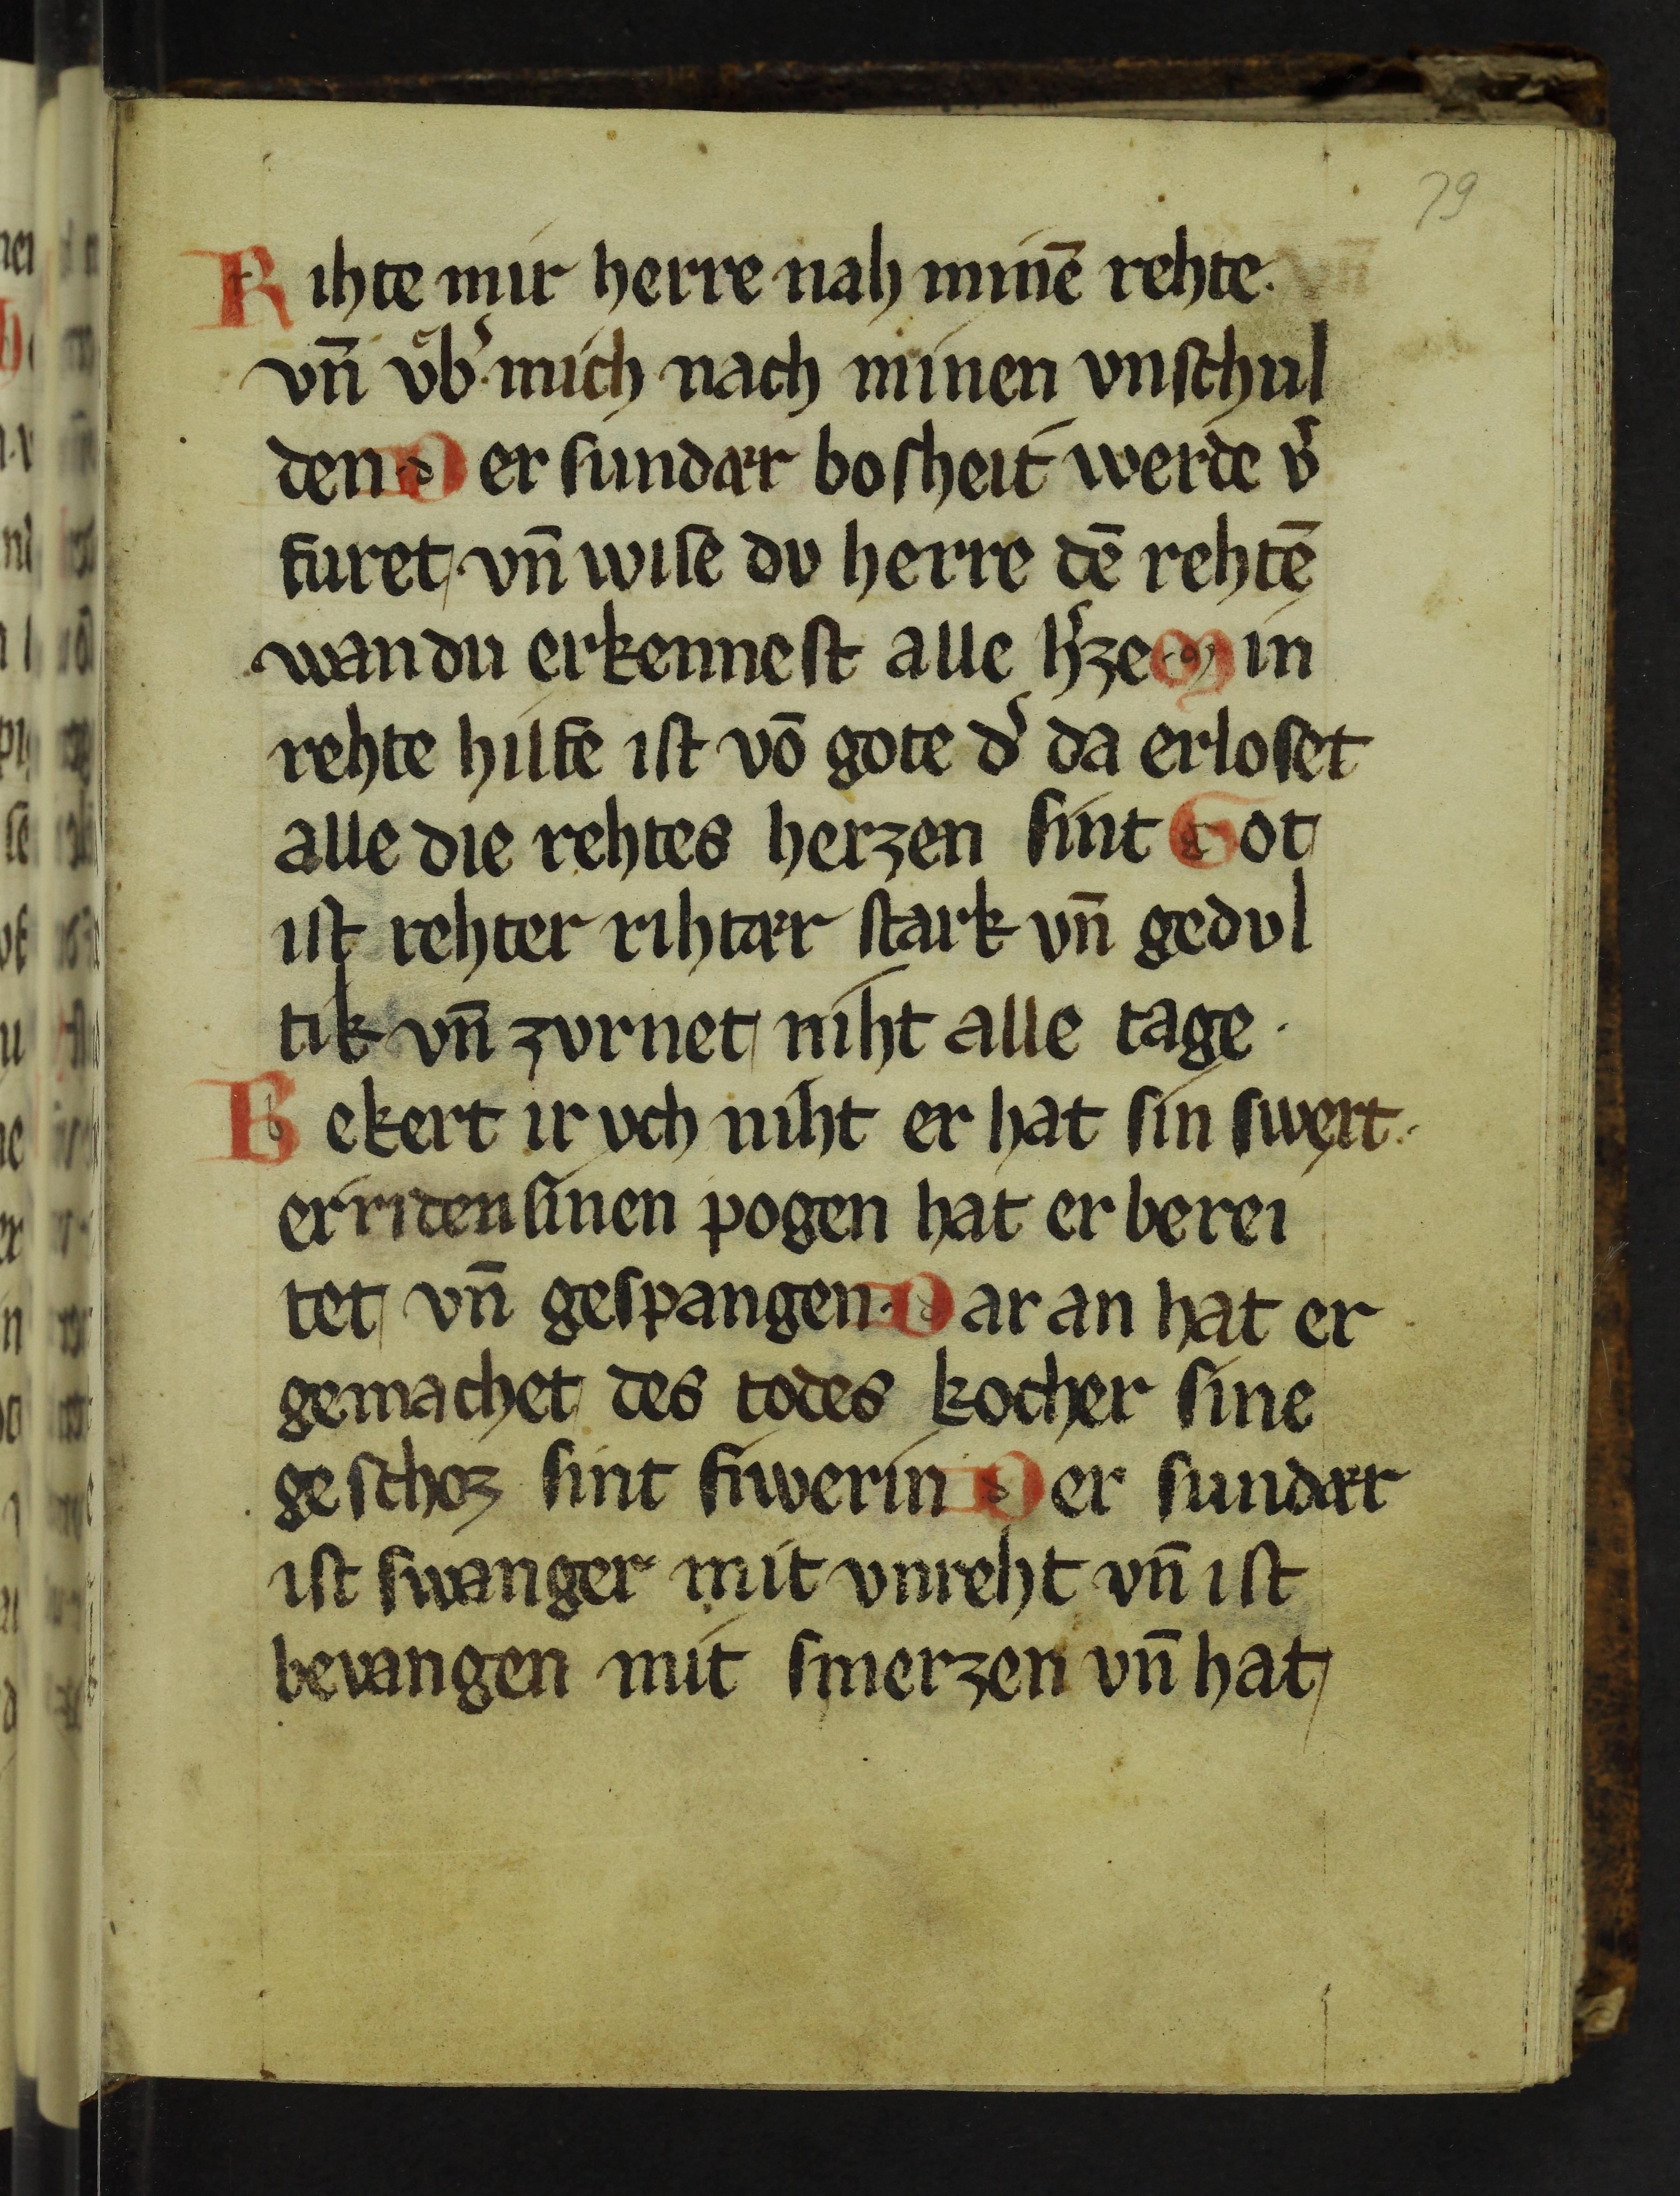 79
Rihte mir herre nah minē rehte.
vn̄ vͦb᾽ mich nach minen vnſchul
den Der ſundær boſheit werde v᾽
furet vn̄ wiſe du herre dē rehtē
wan du erkenneſt alle h᾽ze Min
rehte hilfe iſt vō gote d᾽ da erloſet
alle die rehtes herzen ſint Got
iſt rehter rihtær ſtark vn̄ gedvl
tik vn̄ zvrnet niht alle tage ·
Bekert ir vch niht er hat ſin ſwert·
erriden ſinen pogen hat er berei
tet vn̄ geſpangen· Dar an hat er
gemachet des todes kocher ſine
geſchoz ſint fiwerin Der ſundær
iſt ſwanger mit vnreht vn̄ iſt
bevangen mit ſmerzen vn̄ hat